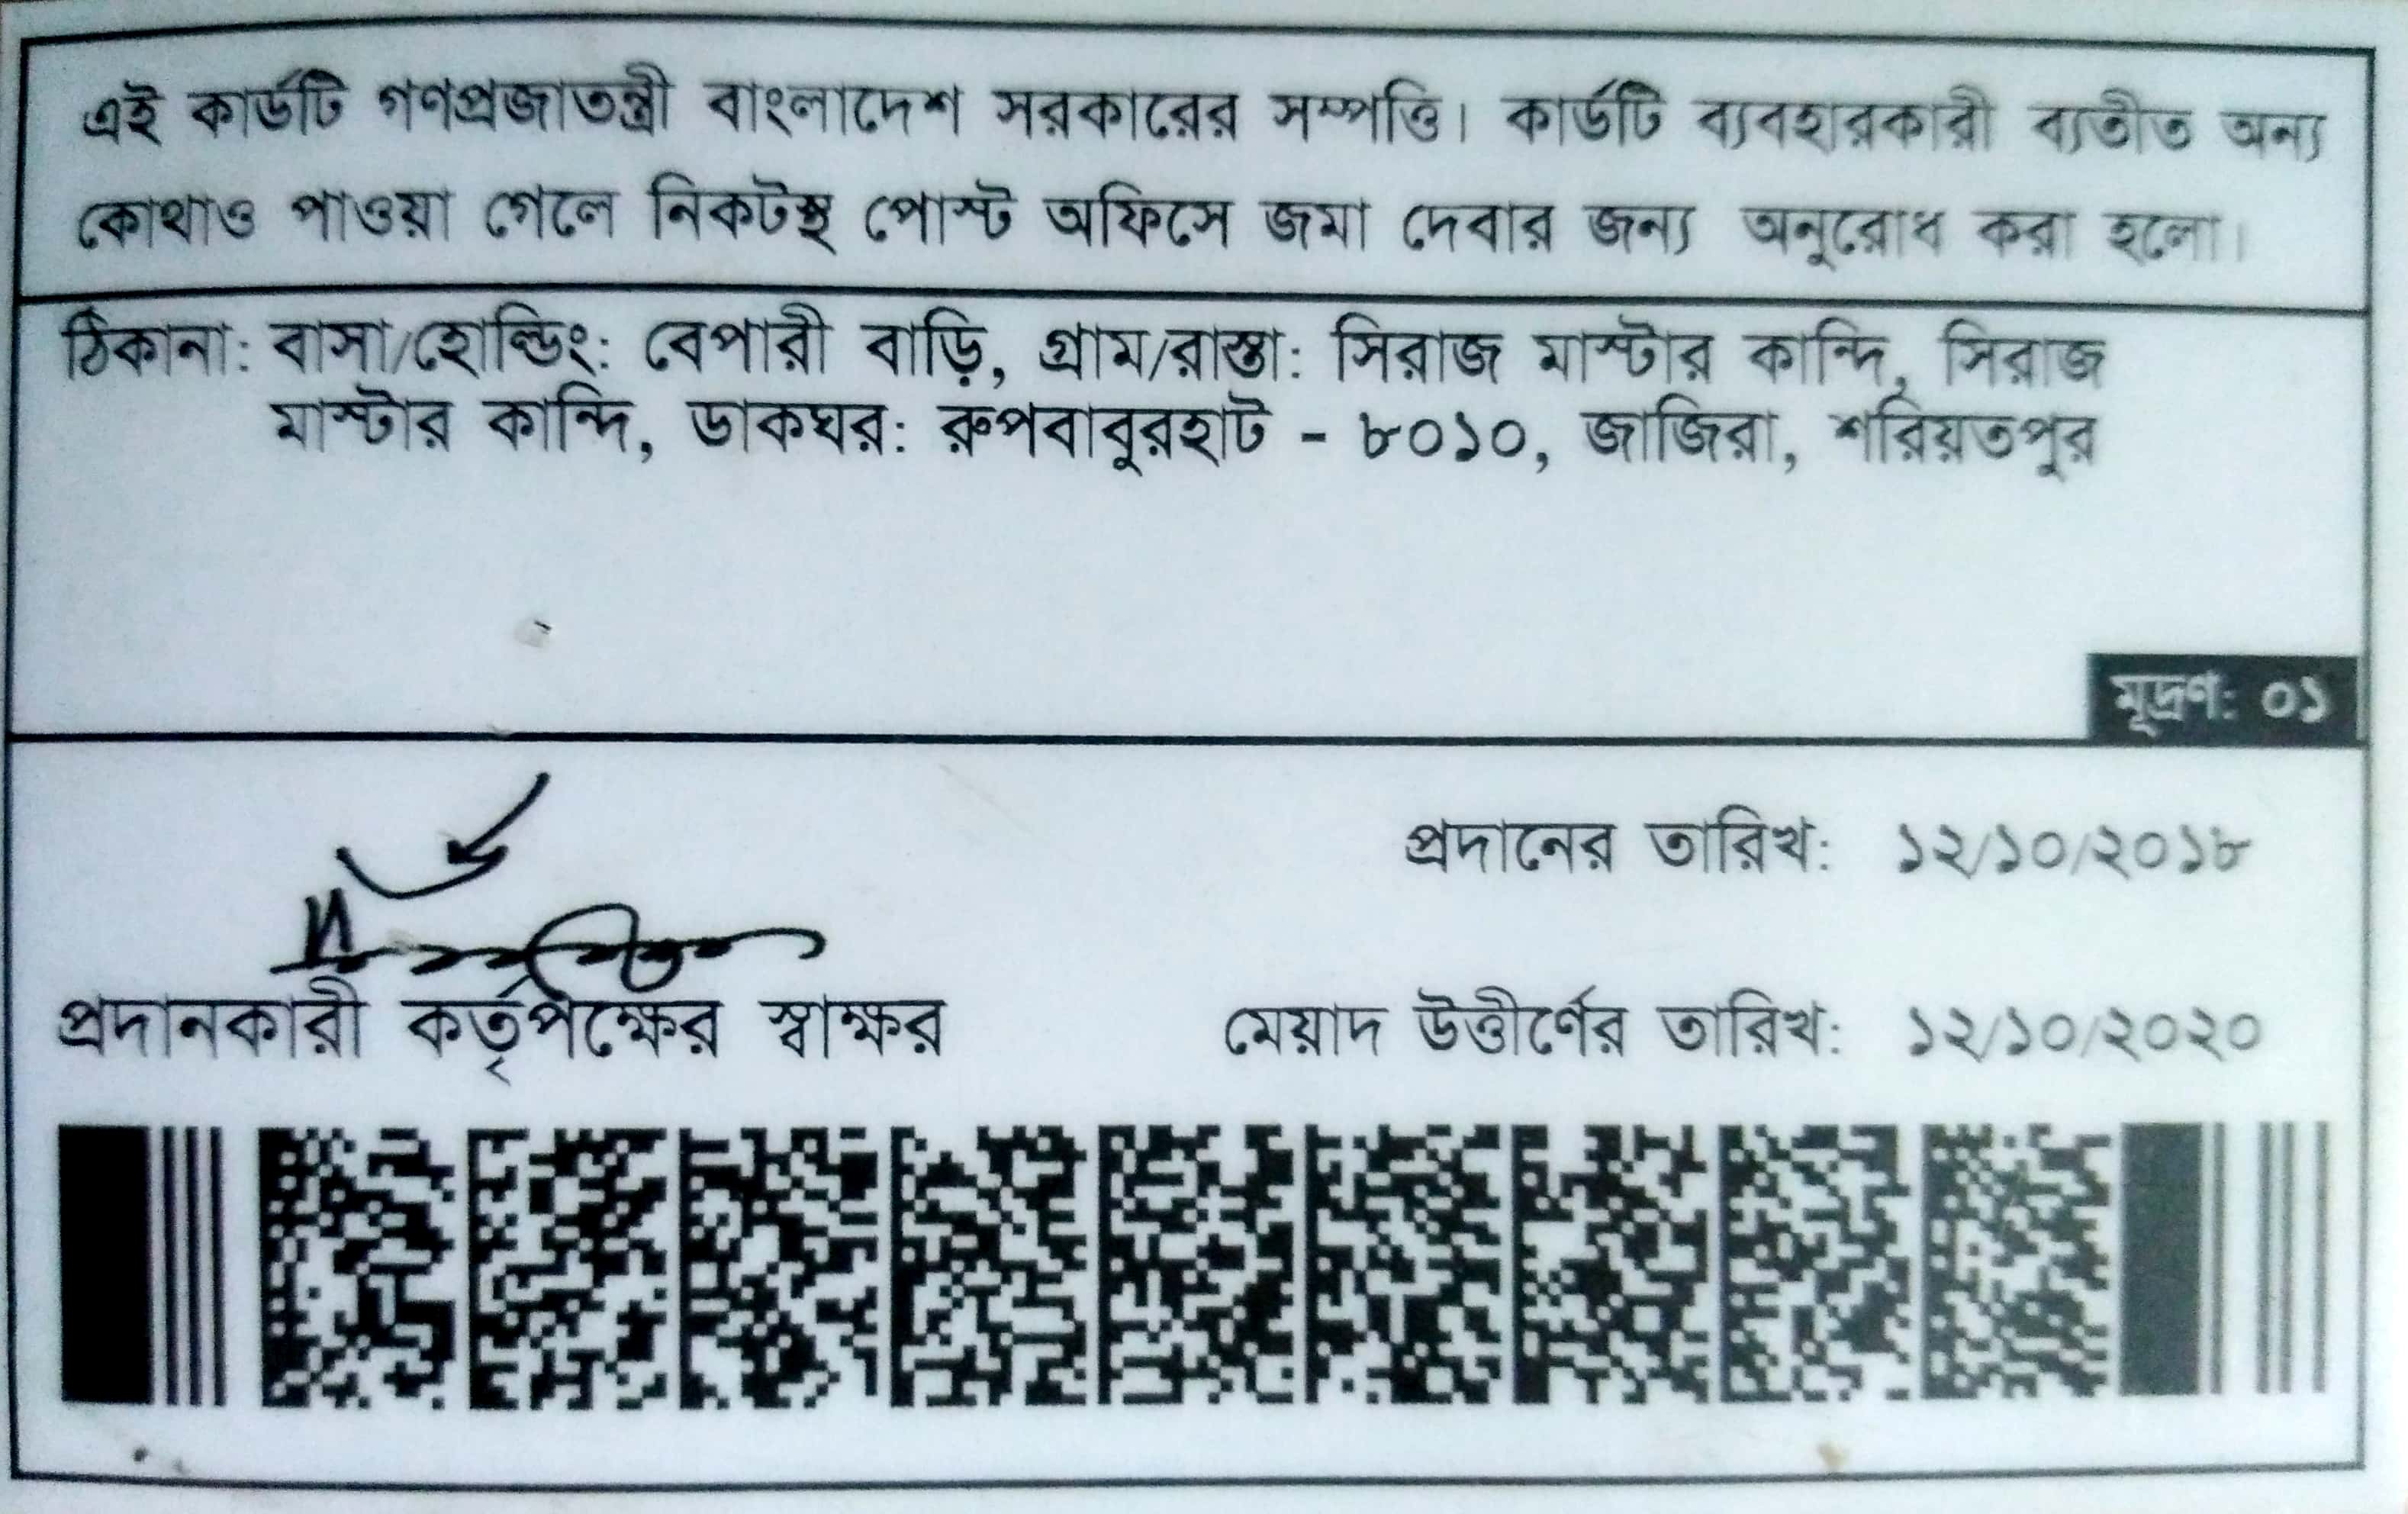 এই কার্ডটি গণপ্রজাতন্ত্রী বাংলাদেশ সরকারের সম্পত্তি। কার্ডটি ব্যবহারকারী ব্যতীত অন্য
কোথাও পাওয়া গেলে নিকটস্থ পোস্ট অফিসে জমা দেবার জন্য অনুরোধ করা হলো।
ঠিকানা: বাসা/হোল্ডিং: বেপারী বাড়ি, গ্রাম/রাস্তা: সিরাজ মাস্টার কান্দি, সিরাজ
মাস্টার কান্দি, ডাকঘর: রুপবাবুরহাট - ৮০১০, জাজিরা, শরিয়তপুর
মূদ্রণ: ০১
প্রদানের তারিখ: ১২/১০/২০১৮
প্রদানকারী কর্তৃপক্ষের স্বাক্ষর
মেয়াদ উত্তীর্ণের তারিখ: ১২/১০/২০২০